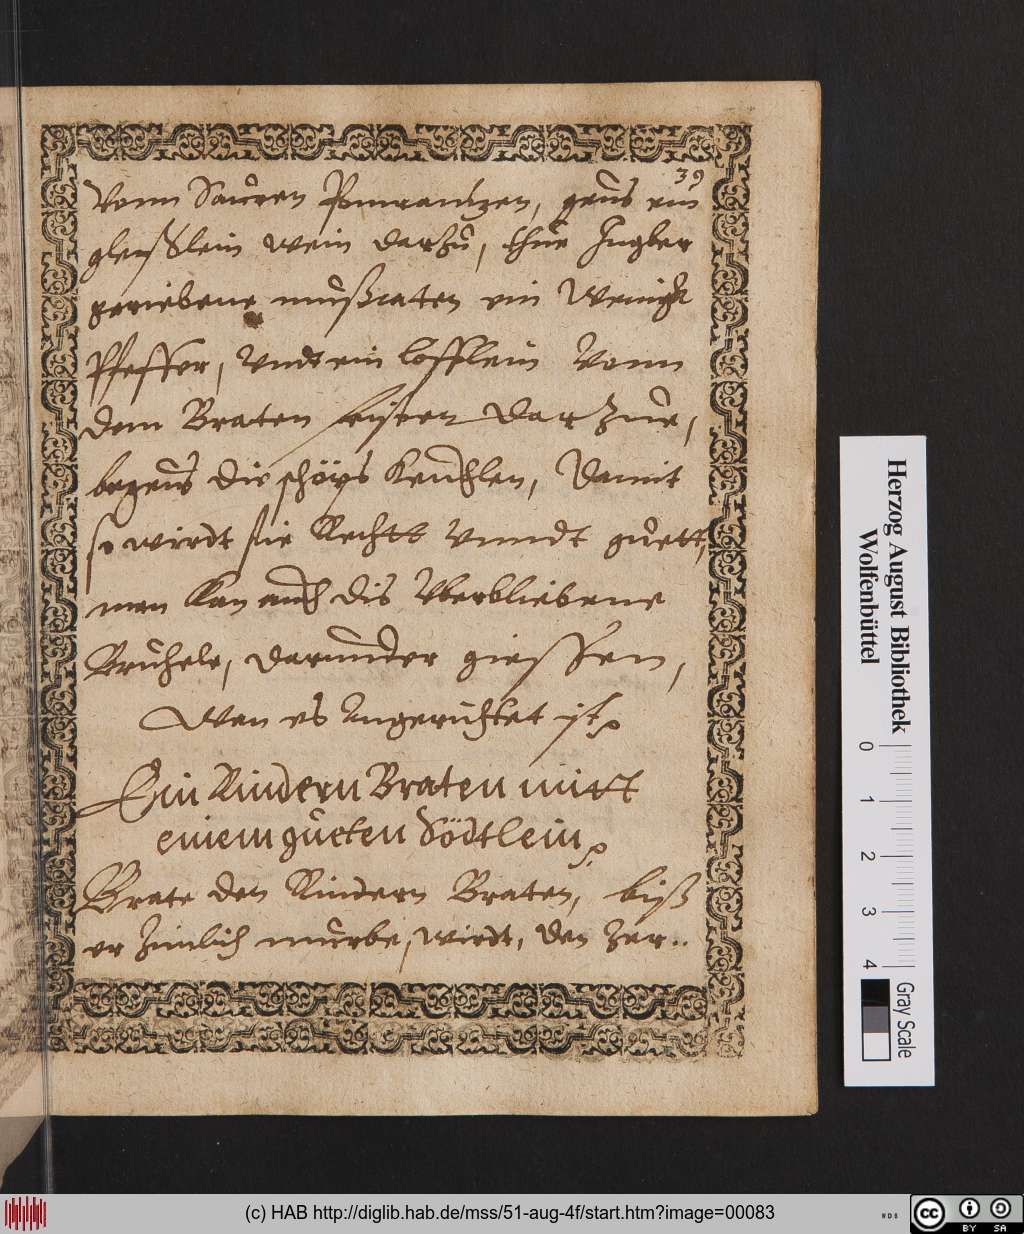 39
Vonn Sauren Pomerantzen, geus ein
gleßlein wein darzu, thue Ingber
geriebene mußcaten ein Wenigk
Pfeffer, Vndt ein löfflein Vonn
dem Braten feisten dar Zue,
begeus die schöps Keuchlen, Damit
so wirdt sie Recht Vnndt guett,
man Kan auch dis Vberbliebene
Bruhele, darunder giessen,
Wan es Angerichtet ist
Ein Rindern Braten mitt
einem gueten Södtlein
Brate den Rindern Braten, biß
er Zimlich murbe, wirdt, den Zer..
Herzog August Bibliothek
Wolfenbüttel
0 1 2 3 4
Gray Scale
(c) HAB http://diglib.hab.de/mss/51-aug-4f/start.htm?image=00083
WDB
cc BY SA